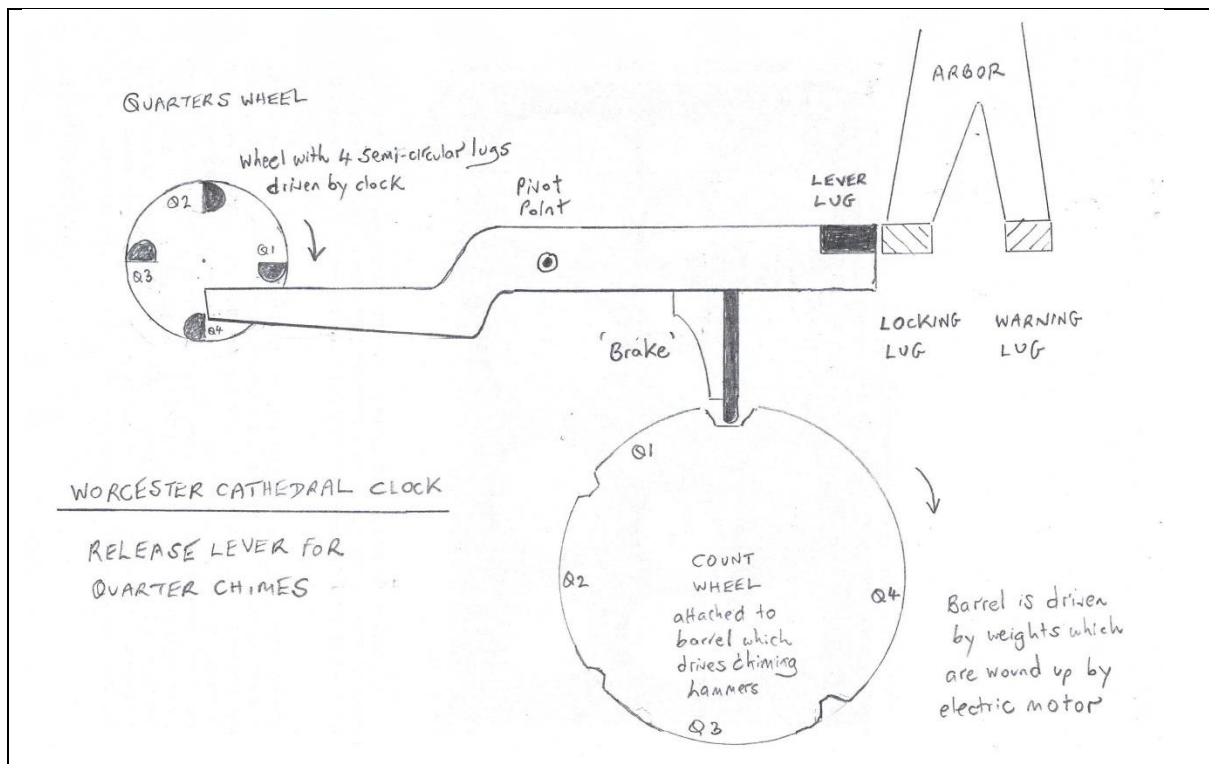 QUARTERS WHEEL
Wheel with 4 semi-circular lugs
driven by clock
Q2
Q1
Q3
Q4
Pivot
Point
LEVER
LUG
ARBOR
LOCKING
LUG
WARNING
LUG
'Brake'
WORCESTER CATHEDRAL CLOCK
RELEASE LEVER FOR
QUARTER CHIMES
Q1
Q2
Q3
Q4
COUNT
WHEEL
attached to
barrel which
drives chiming
hammers
Barrel is driven
by weights which
are wound up by
electric motor